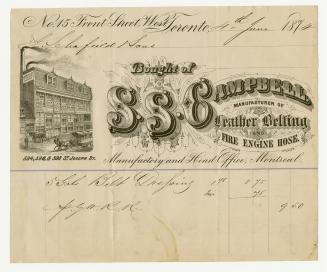 No. 15 Front Street West Toronto, 4th June 1874
Schofield & Sons
Bought of
S. S. Campbell
MANUFACTURER OF
Leather Belting
AND
FIRE ENGINE HOSE.
594, 596, & 598 St. Joseph St.
Manufactory and Head Office, Montreal.
Belt Dressing 8 75
75
9 50